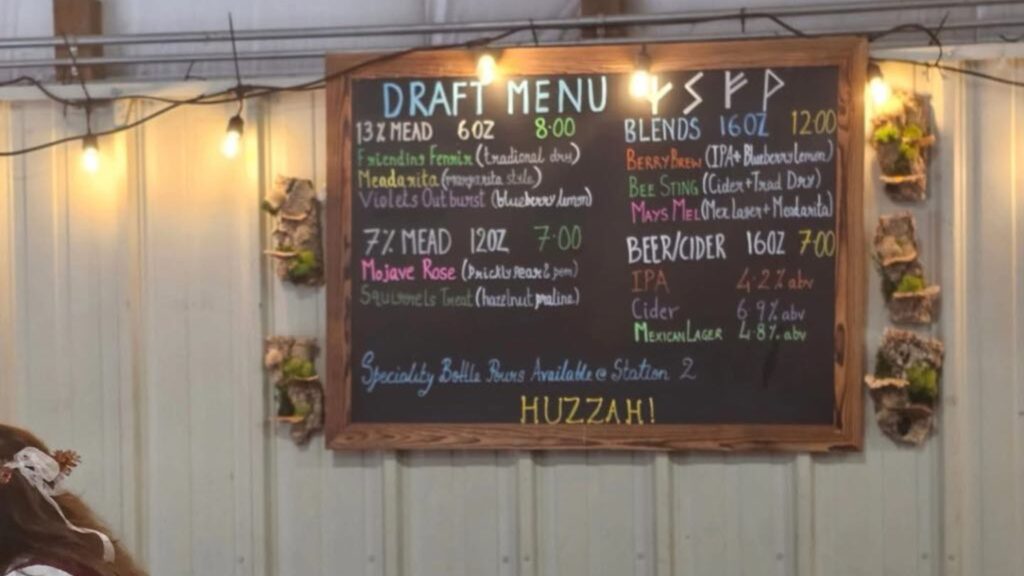 DRAFT MENU ᛉ ᛊ ᚠ ᚹ
13% MEAD 6OZ 8.00
Friending Fenrir (tradional dry)
Meadarita (margarita style)
Violets Outburst (blueberry lemon)
7% MEAD 12OZ 7.00
Mojave Rose (Prickly pear &
Squirrels Treat (hazelnut praline)
Speciality Bottle Pours Available @ Station 2
HUZZAH!
BLENDS 16OZ 12.00
BERRY BREW (IPA + Blueberry lemon)
BEE STING (Cider + Trad Dry)
MAYS MEL (Mex Lager + Meadarita)
BEER/CIDER 16OZ 7.00
IPA 4.2% abv
Cider 6.9% abv
MEXICAN LAGER 4.8% abv